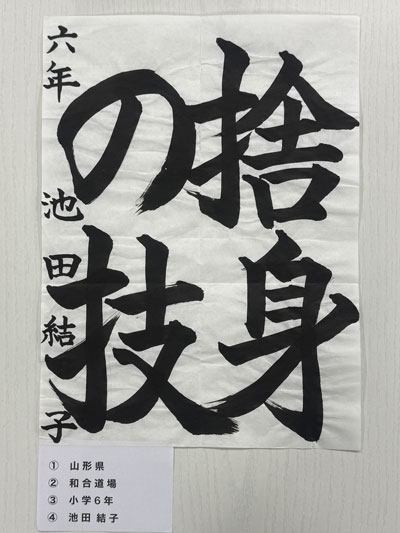 捨身
の技
六年 池田結子
① 山形県
② 和合道場
③ 小学6年
④ 池田 結子